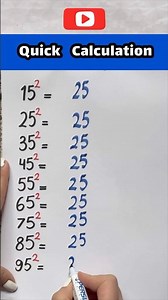 Quick Calculation
15² = 25
25² = 25
35² = 25
45² = 25
55² = 25
65² = 25
75² = 25
85² = 25
95² = 2